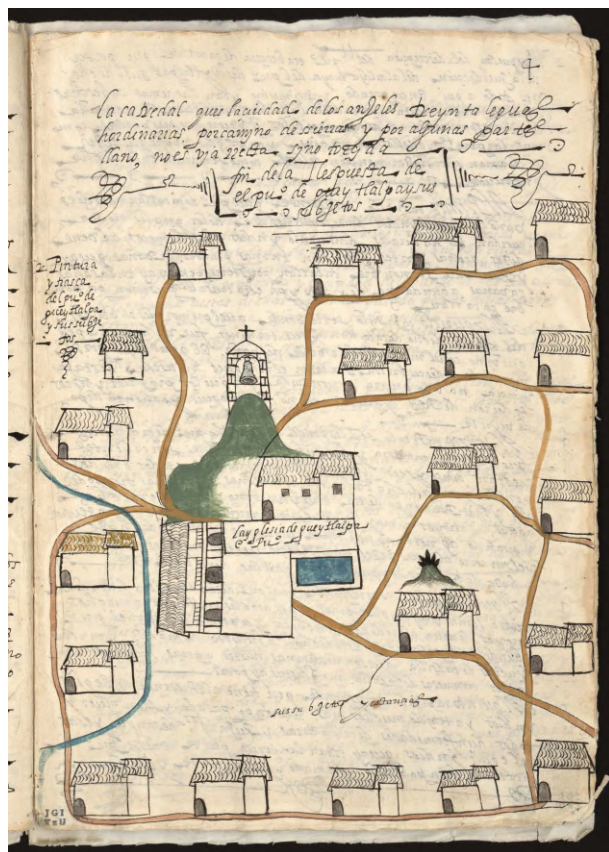 4
la catedral ques la ciudad de los angeles treynta leguas
hordinarias por camino de sierras y por algunas partes
llano, no es via recta sino torcida
fin de la Respuesta de
el pu.º de queytlalpa y sus
subjetos
Pintura
y traça
del pu.º de
queytlalpa
y sus subje
tos
la yglesia de queytlalpa
Pu.º
sus subjetos y estancias
JGI